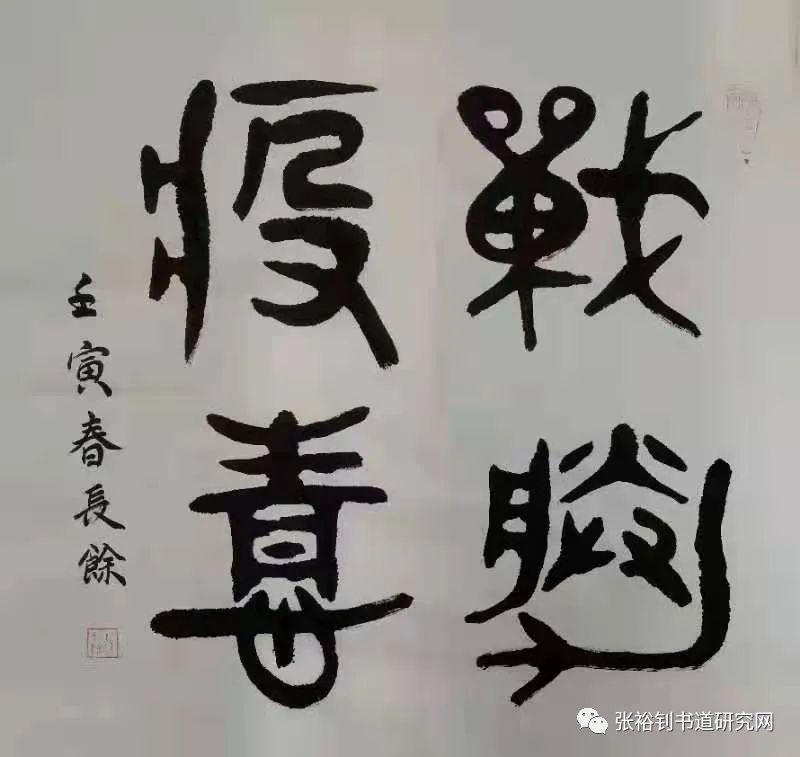 戰勝
疫毒
壬寅春長餘
张裕钊书道研究网